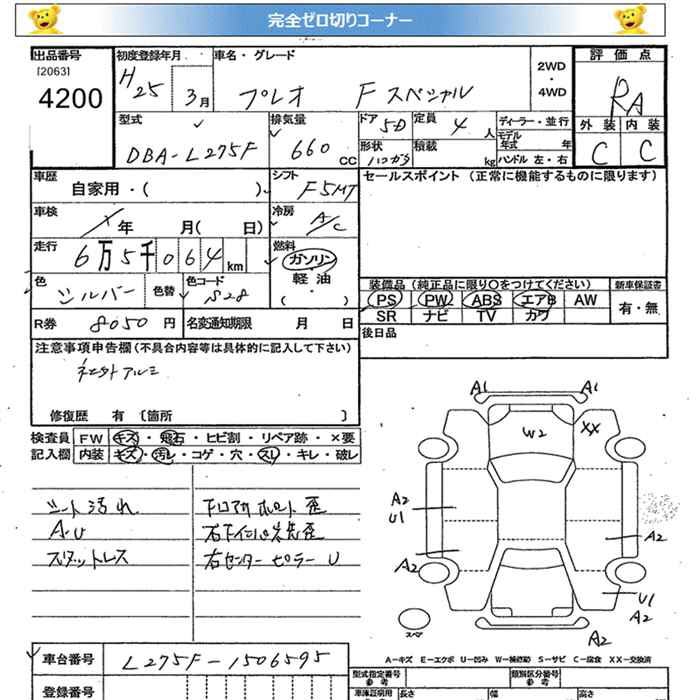 完全ゼロ切りコーナー
出品番号 初度登録年月 車名・グレード 評価点
[2063] 4200 H25 3月 プレオ Fスペシャル 2WD・4WD RA
型式 排気量 ドア 5D 定員 4人 ディーラー・並行 外装 内装
DBA-L275F 660CC 形状 積載 kg モデル年式 年 C C
ハンドル 左・右
車歴 自家用・( ) シフト F5MT セールスポイント (正常に機能するものに限ります)
車検 年 月( 日) 冷房 A/C
走行 6万5千064km 燃料 ガソリン・軽油・( )
色 シルバー 色替 色コード S28 装備品(純正品に限り○をつけてください) 新車保証書
PS PW ABS エアB AW 有・無
SR ナビ TV カワ
R券 8050円 名変通知期限 月 日 後日品
注意事項申告欄(不具合内容等は具体的に記入して下さい)
社外アルミ
修復歴 有 〔箇所 〕
検査員 FW キズ・飛石・ヒビ割・リペア跡・×要
記入欄 内装 キズ・汚レ・コゲ・穴・スレ・キレ・破レ
シート汚れ
A・U
スタットレス
右センターピラーU
A1 A1
W2 XX
A2
U1
A2
A2 A2
U1
A2
スペア
A2
A-キズ E-エクボ U-凹み W-補修跡 S-サビ C-腐食 XX-交換済
車台番号 L275F-1506595 型式指定番号 参考 類別区分番号 参考
登録番号 車庫証明用 長さ 幅 高さ